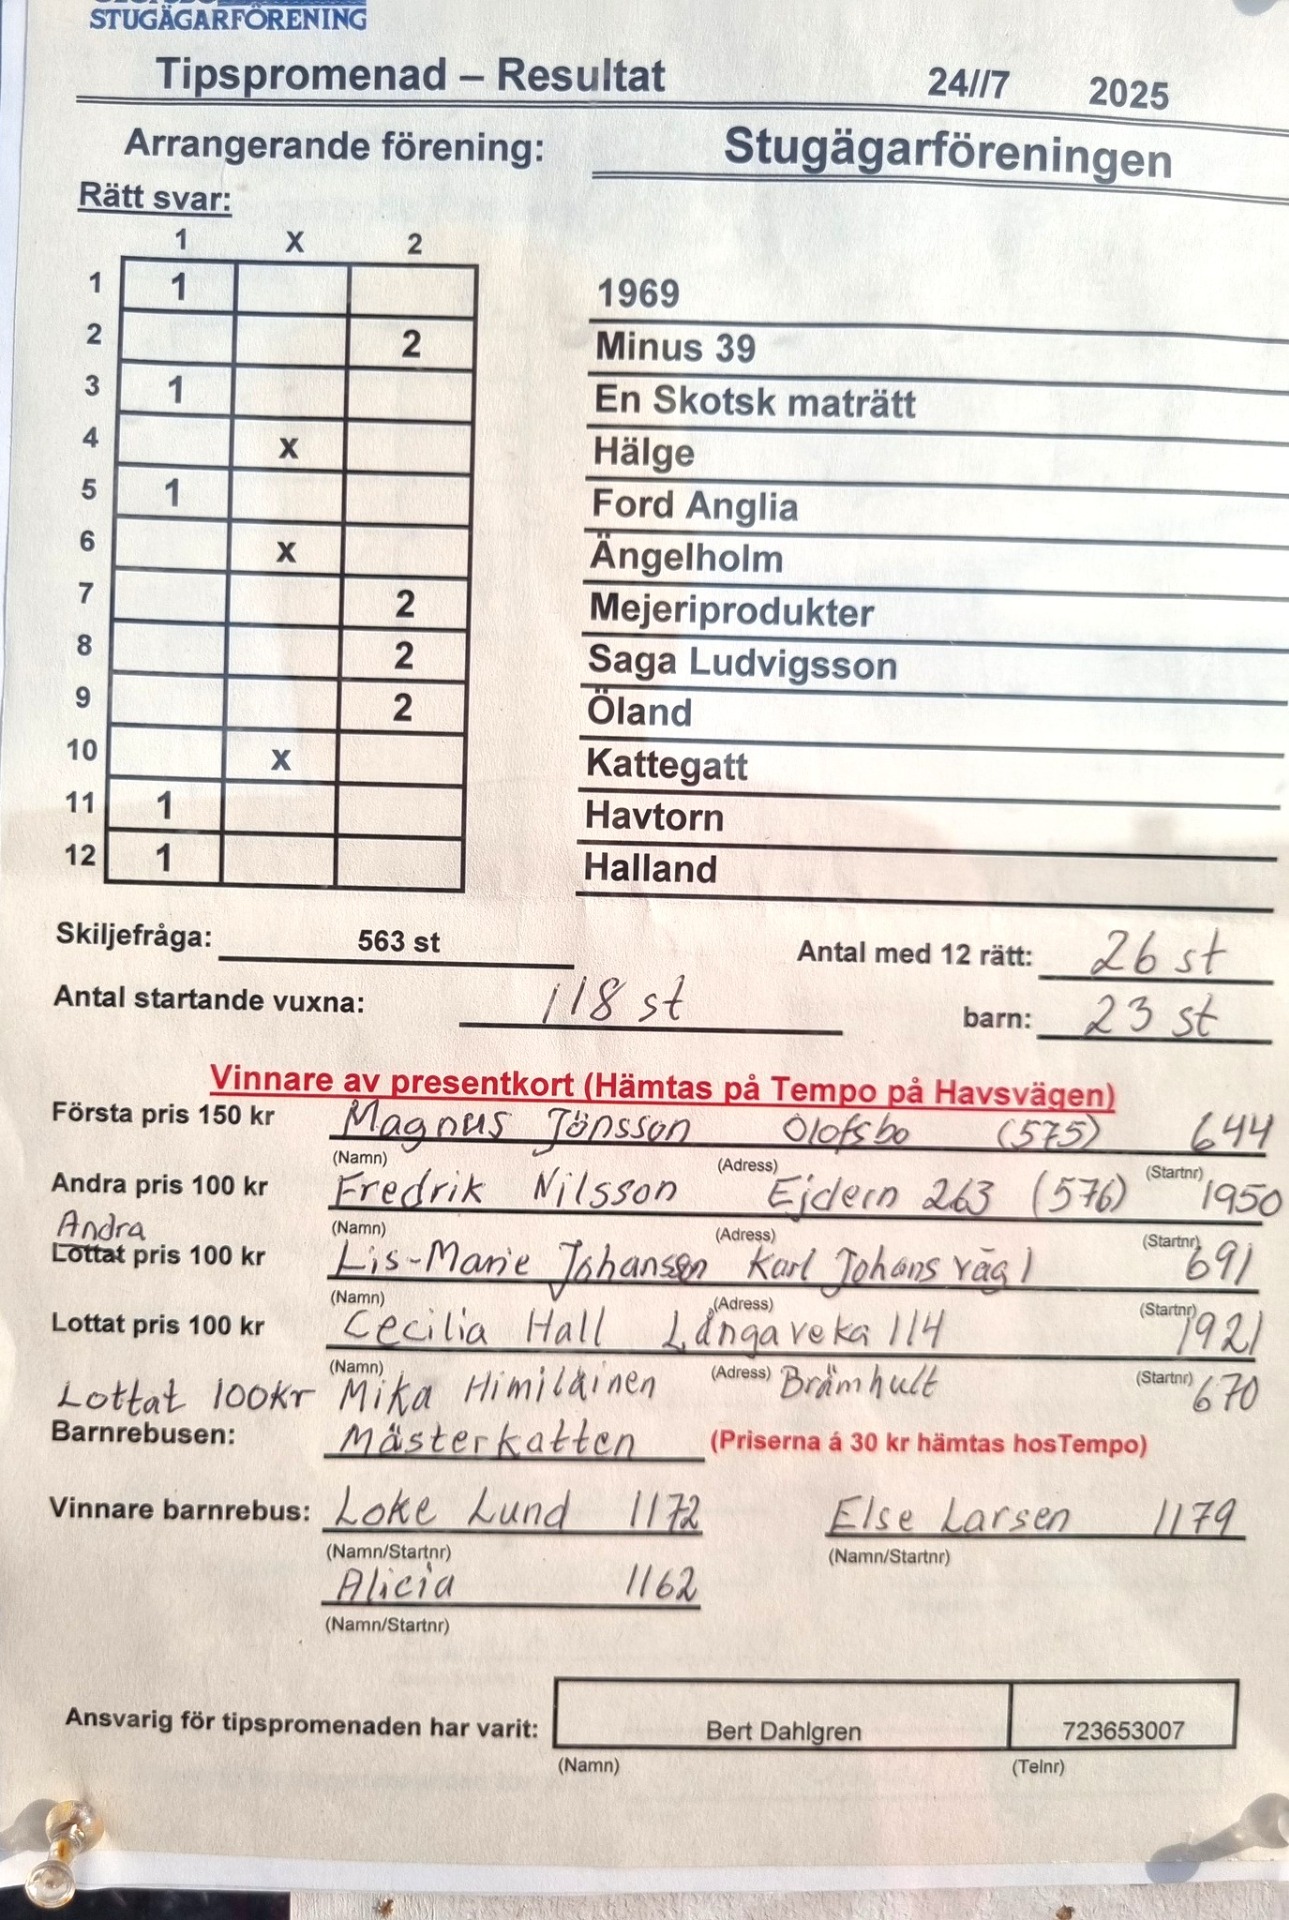 STUGÄGARFÖRENING
Tipspromenad – Resultat 24//7 2025
Arrangerande förening: Stugägarföreningen
Rätt svar:
1 X 2
1 1 1969
2 2 Minus 39
3 1 En Skotsk maträtt
4 X Hälge
5 1 Ford Anglia
6 X Ängelholm
7 2 Mejeriprodukter
8 2 Saga Ludvigsson
9 2 Öland
10 X Kattegatt
11 1 Havtorn
12 1 Halland
Skiljefråga: 563 st Antal med 12 rätt: 26 st
Antal startande vuxna: 118 st barn: 23 st
Vinnare av presentkort (Hämtas på Tempo på Havsvägen)
Första pris 150 kr Magnus Jönsson Olofsbo (575) 644
(Namn) (Adress) (Startnr)
Andra pris 100 kr Fredrik Nilsson Ejdern 263 (576) 1950
(Namn) (Adress) (Startnr)
Andra
Lottat pris 100 kr Lis-Marie Johansson Karl Johans väg 1 691
(Namn) (Adress) (Startnr)
Lottat pris 100 kr Cecilia Hall Långaveka 114 1921
(Namn) (Adress) (Startnr)
Lottat 100kr Mika Himiläinen Brämhult 670
Barnrebusen: Mästerkatten (Priserna á 30 kr hämtas hosTempo)
Vinnare barnrebus: Loke Lund 1172 Else Larsen 1179
(Namn/Startnr) (Namn/Startnr)
Alicia 1162
(Namn/Startnr)
Ansvarig för tipspromenaden har varit: Bert Dahlgren 723653007
(Namn) (Telnr)